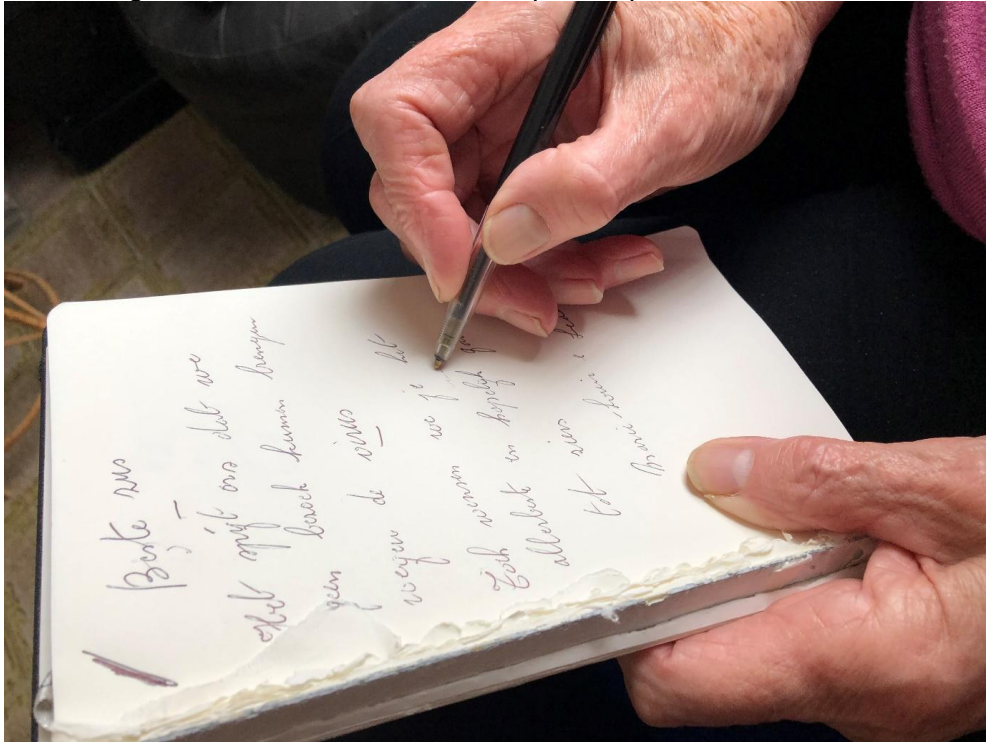 Beste zus
Het spijt ons dat we
geen bezoek kunnen brengen
wegens de virus
Toch wensen we je het
allerbest en hopelijk
tot ziens